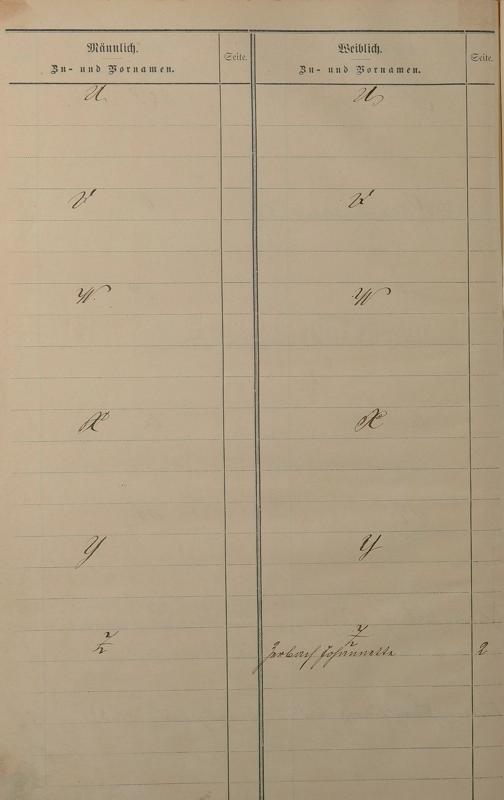 Männlich.
Zu- und Vornamen.
Seite.
U
V
W
X
Y
Z
Weiblich.
Zu- und Vornamen.
Seite.
U
V
W
X
Y
Z
Zerbach Johannette 2